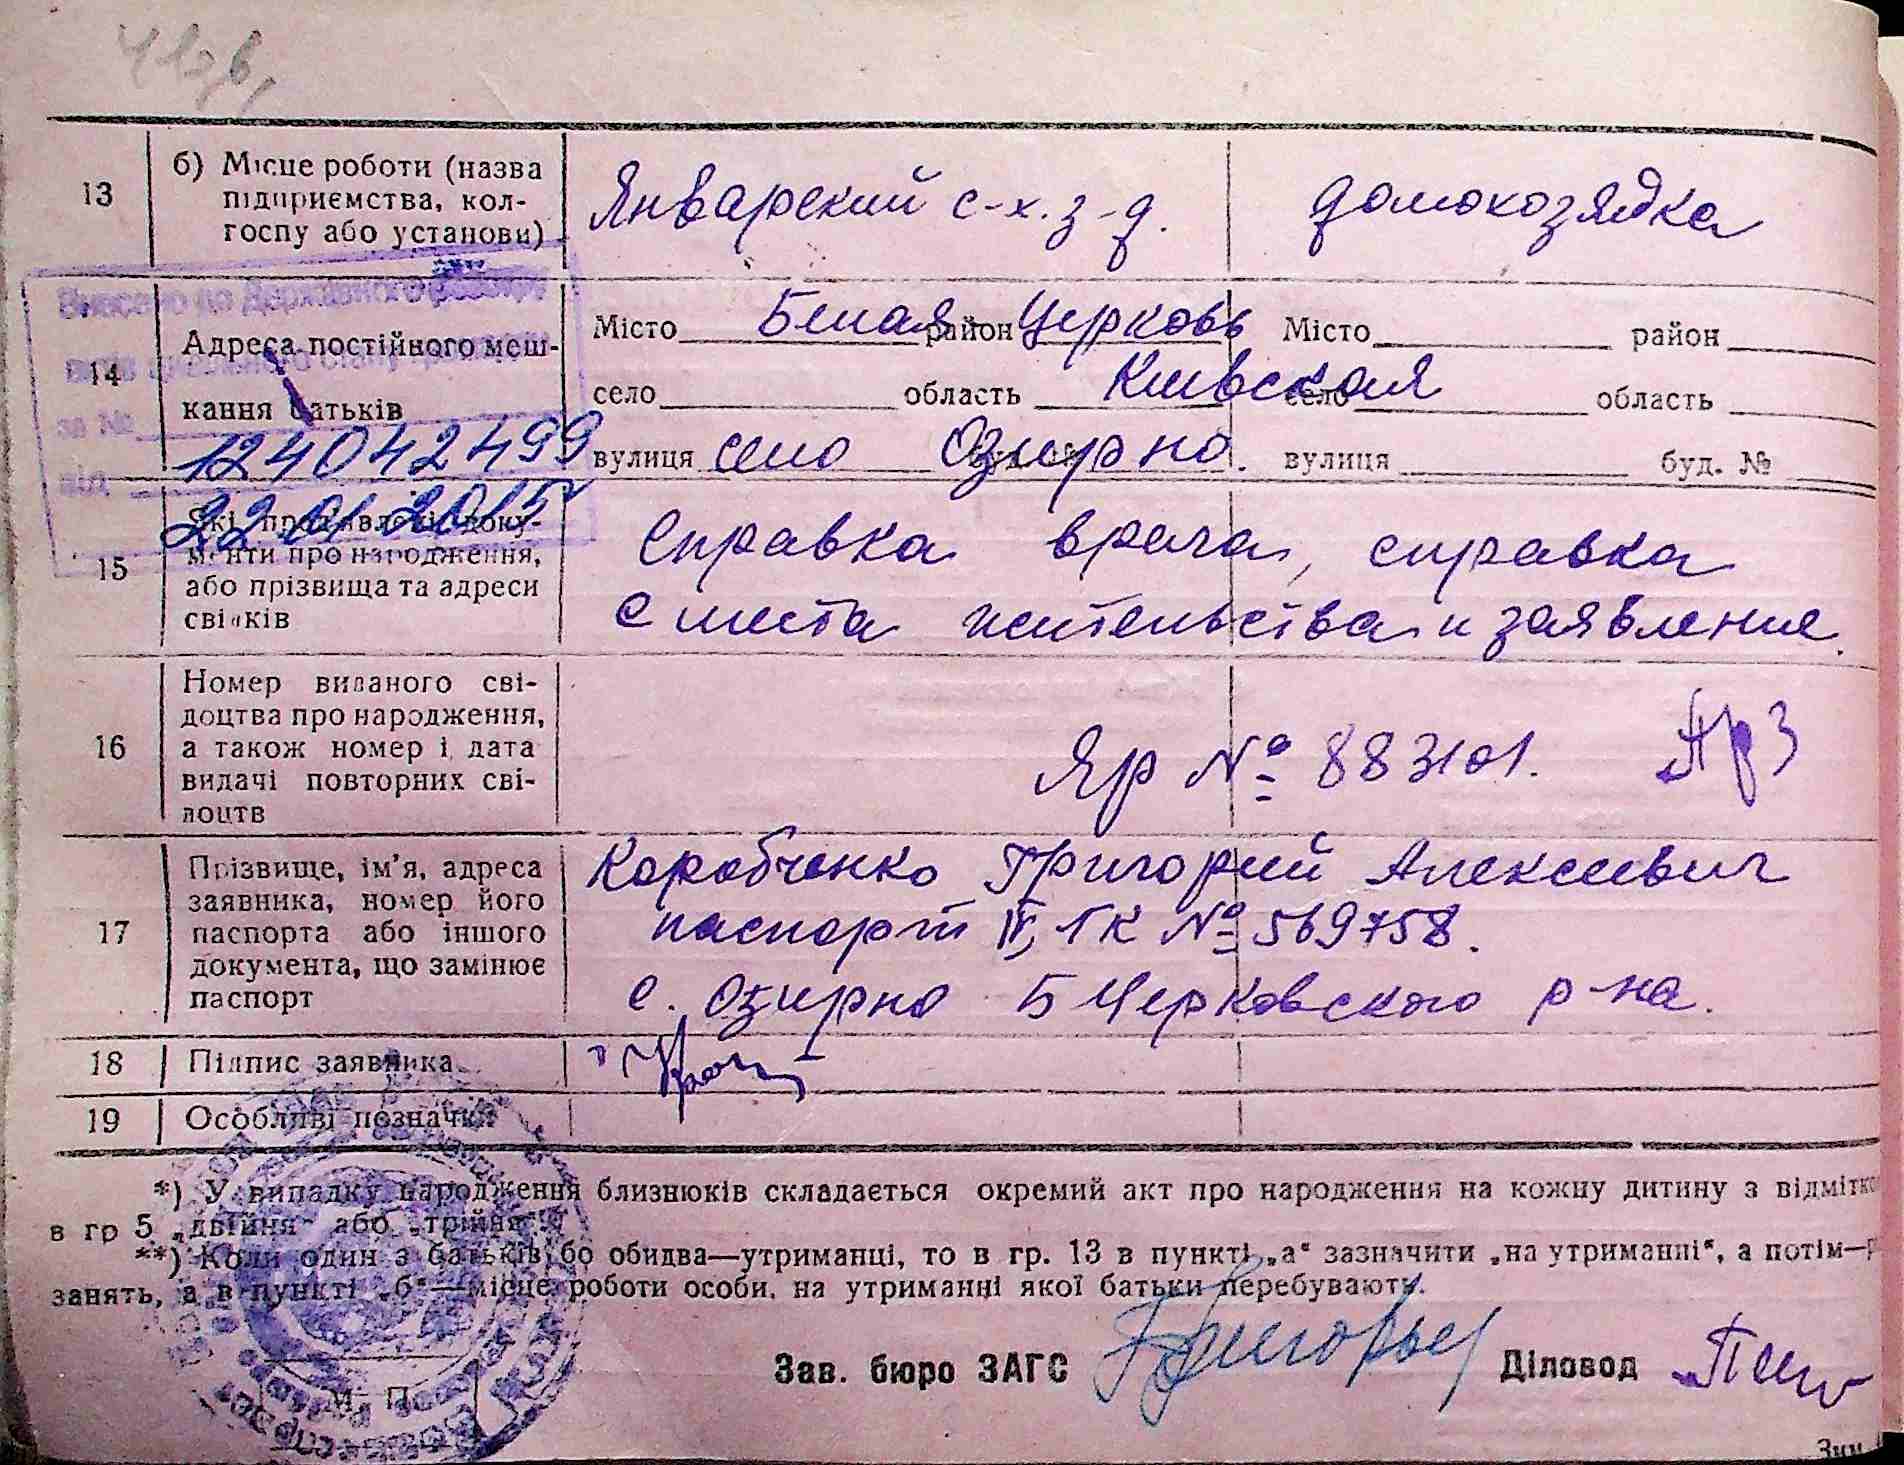 13
б) Місце роботи (назва
підприємства, кол-
госпу або установи)
Январский с-х. з-д.
домохозяйка
Внесено до Державного реєстру
за №
124042499
від
22.01.2015
14
Адреса постійного меш-
кання батьків
Місто Белая район Церковь
село область Киевская
вулиця село Озирно.
Місто район
село область
вулиця буд. №
15
Які пред'явлені доку-
менти про народження,
або прізвища та адреси
свідків
Справка врача, справка
с места жительства и заявление.
16
Номер виданого сві-
доцтва про народження,
а також номер і дата
видачі повторних сві-
доцтв
Яр № 883101.
17
Прізвище, ім'я, адреса
заявника, номер його
паспорта або іншого
документа, що замінює
паспорт
Коробченко Григорий Алексеевич
паспорт ІК № 569758.
с. Озирно Б Церковского р-на.
18
Підпис заявника
19
Особливі позначки
*) У випадку народження близнюків складається окремий акт про народження на кожну дитину з відмітко
в гр 5 „двійня“ або „трійня“.
**) Коли один з батьків бо обидва—утриманці, то в гр. 13 в пункті „а“ зазначити „на утриманні“, а потім—р
занять, а в пункті „б“—місце роботи особи, на утриманні якої батьки перебувають.
Зав. бюро ЗАГС
Діловод
М. П.